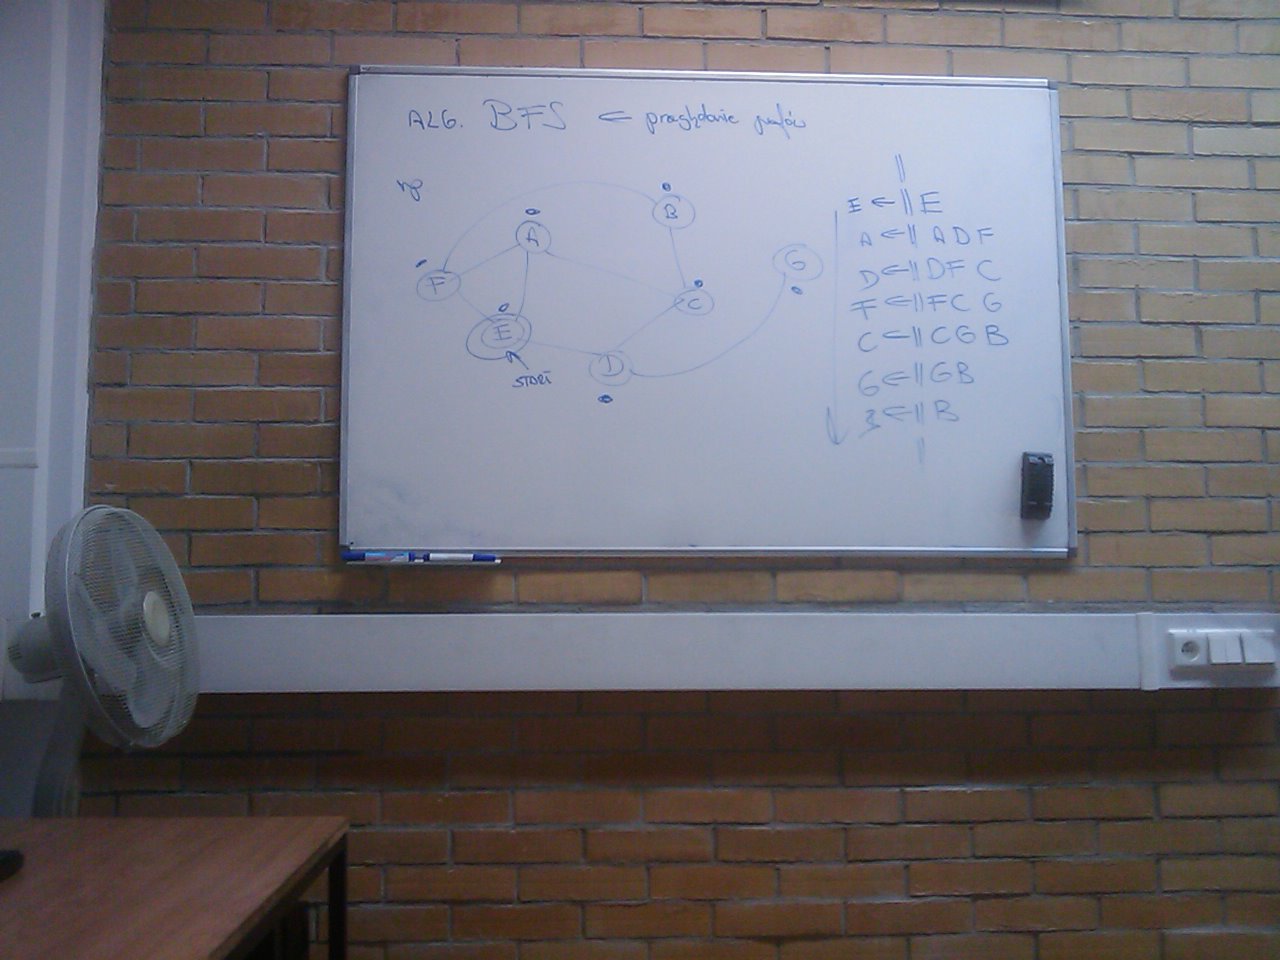 ALG. BFS ← przeglądanie grafów
B
A
G
F
C
E
D
START
E ← || E
A ← || A D F
D ← || D F C
F ← || F C G
C ← || C G B
G ← || G B
B ← || B